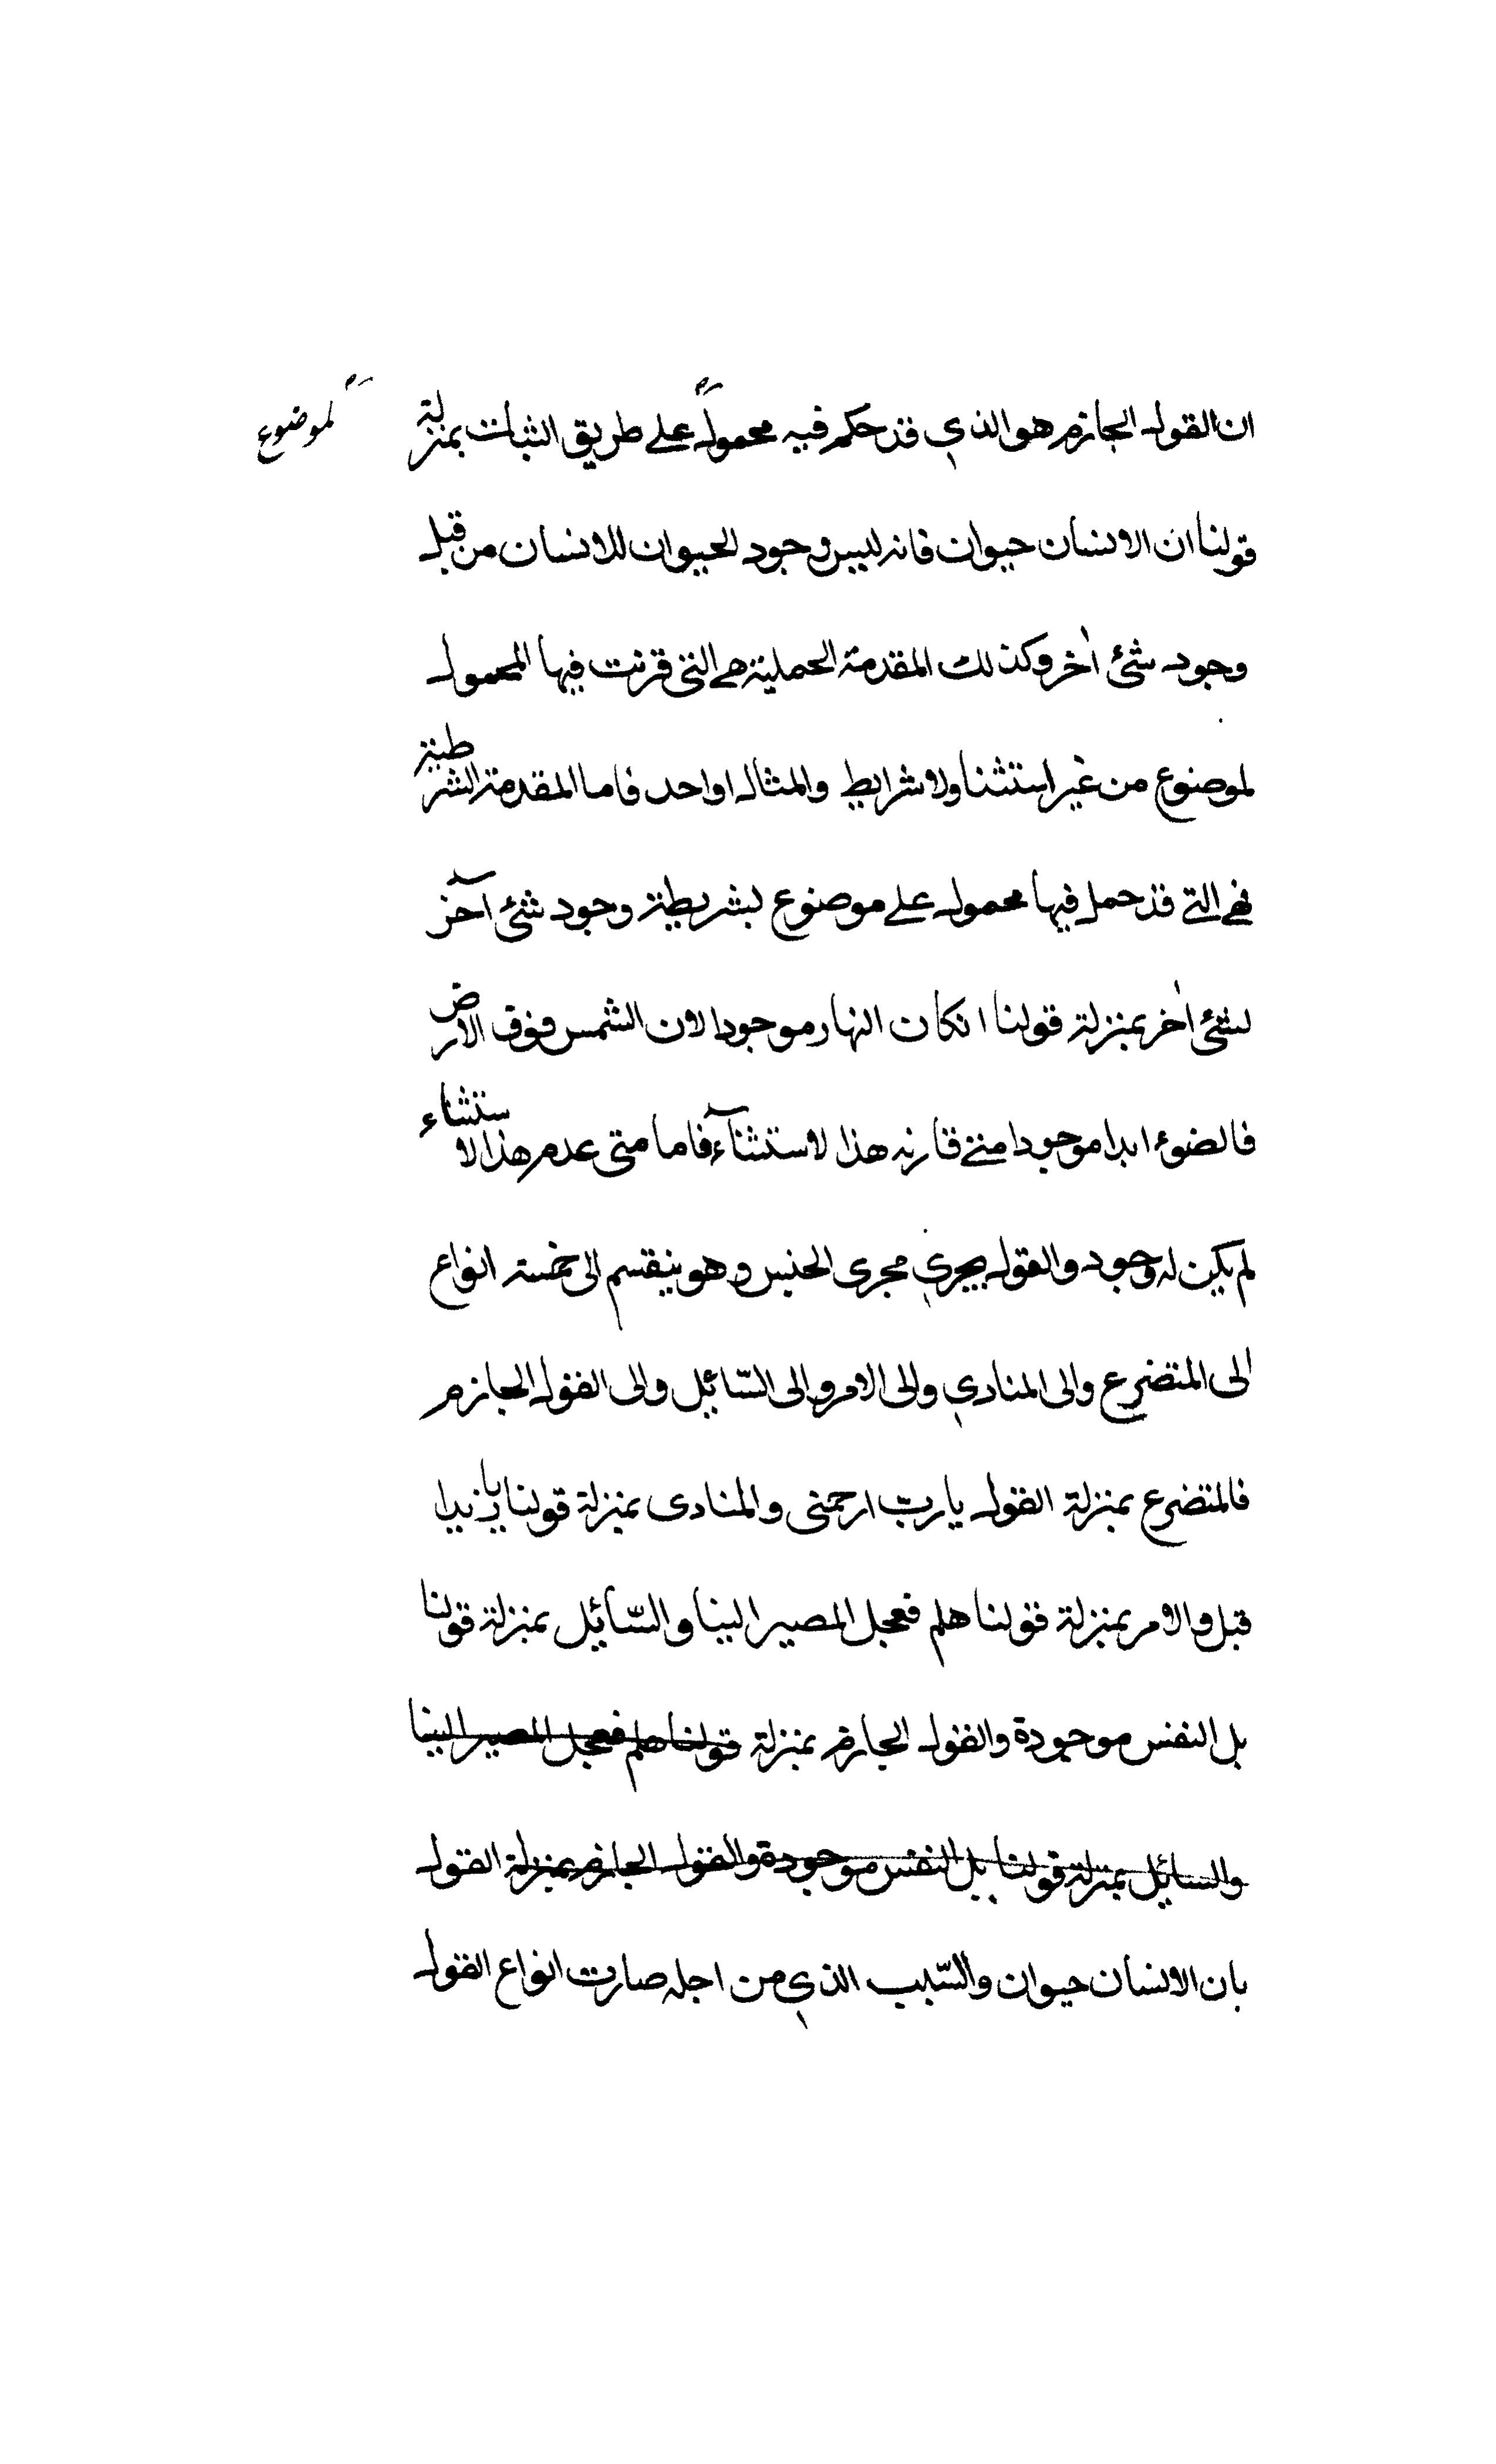 ان القول الجازم هو الذي قد حكم فيه محمول على طريق الثبات بمنزلة
لموضوع
قولنا ان الانسان حيوان فانه ليس وجود الحيوان للانسان من قبل
وجود شئ اخر وكذلك المقدمة الحملية هي التي قرنت فيها المحمول
لموضوع من غير استثنا ولا شرايط والمثال واحد فاما المقدمة الشرطية
فهي التي قد حمل فيها محمول على موضوع بشريطة وجود شئ آخر
لشئ اخر بمنزلة قولنا انكان النهار موجودا لان الشمس فوق الارض
فالضوء ابدا موجودا متى قارنه هذا لاستثنآء فاما متى عدم هذا الاستثناء
لم يكن له وجود والقول يجري مجرى الجنس وهو ينقسم الى خمسة انواع
الى المتضرع والى المنادي والى الامر والى السّائل والى القول الجازم
فالمتضرع بمنزلة القول يا ربّ ارحمنى والمنادى بمنزلة قولنا يا زيدا
قبل والامر بمنزلة قولنا هلم فعجل المصير الينا والسّائل بمنزلة قولنا
بل النفس موجودة والقول الجازم بمنزلة قولنا هلم فعجل المصير الينا
والسائل بمنزلة قولنا بل النفس موجودة والقول الجازم بمنزلة القول
بان الانسان حيوان والسّبب الذي من اجله صارت انواع القول